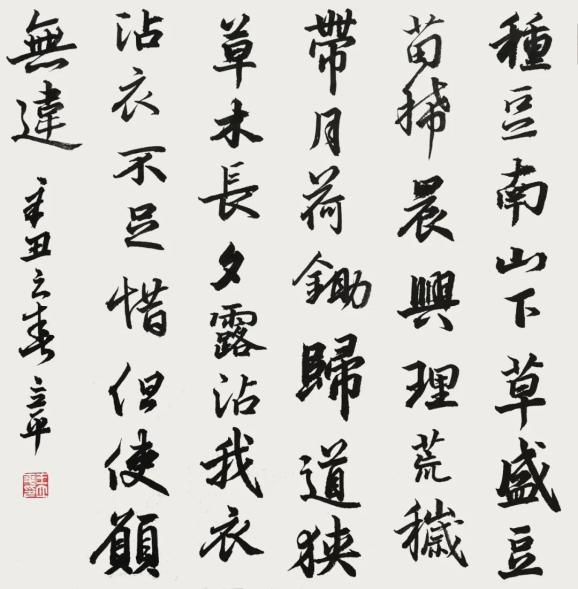 種豆南山下草盛豆
苗稀晨興理荒穢
帶月荷鋤歸道狹
草木長夕露沾我衣
沾衣不足惜但使願
無違
辛丑之春立平